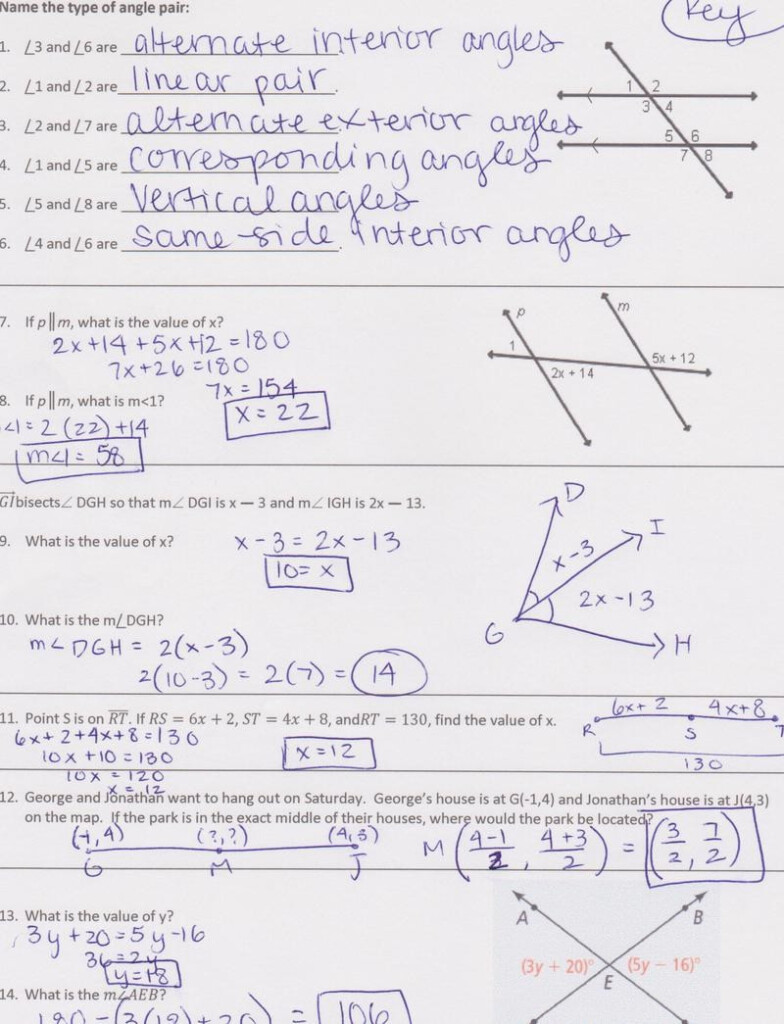 Name the type of angle pair:
Key
1. ∠3 and ∠6 are alternate interior angles
2. ∠1 and ∠2 are linear pair.
3. ∠2 and ∠7 are alternate exterior angles
4. ∠1 and ∠5 are corresponding angles
5. ∠5 and ∠8 are Vertical angles
6. ∠4 and ∠6 are same-side interior angles
1 2
3 4
5 6
7 8
7. If p||m, what is the value of x?
2x+14+5x+12=180
7x+26=180
7x=154
x=22
p
m
1
5x + 12
2x + 14
8. If p||m, what is m<1?
<1=2(22)+14
m<1=58
GI bisects∠ DGH so that m∠ DGI is x — 3 and m∠ IGH is 2x — 13.
9. What is the value of x?
x-3=2x-13
10=x
D
I
x-3
2x-13
G
H
10. What is the m∠DGH?
m∠DGH = 2(x-3)
2(10-3) = 2(7) = 14
11. Point S is on RT. If RS = 6x + 2, ST = 4x + 8, andRT = 130, find the value of x.
6x+2+4x+8=130
10x+10=130
10x=120
x=12
x=12
6x+2 4x+8
R S T
130
12. George and Jonathan want to hang out on Saturday. George's house is at G(-1,4) and Jonathan's house is at J(4,3)
on the map. If the park is in the exact middle of their houses, where would the park be located?
(-1,4) (?,?) (4,3)
G M J
M (4-1/2, 4+3/2) = (3/2, 7/2)
13. What is the value of y?
3y+20=5y-16
36=2y
y=18
A
B
(3y + 20)° (5y − 16)°
E
14. What is the m∠AEB?
180-(3(18)+20) = 106